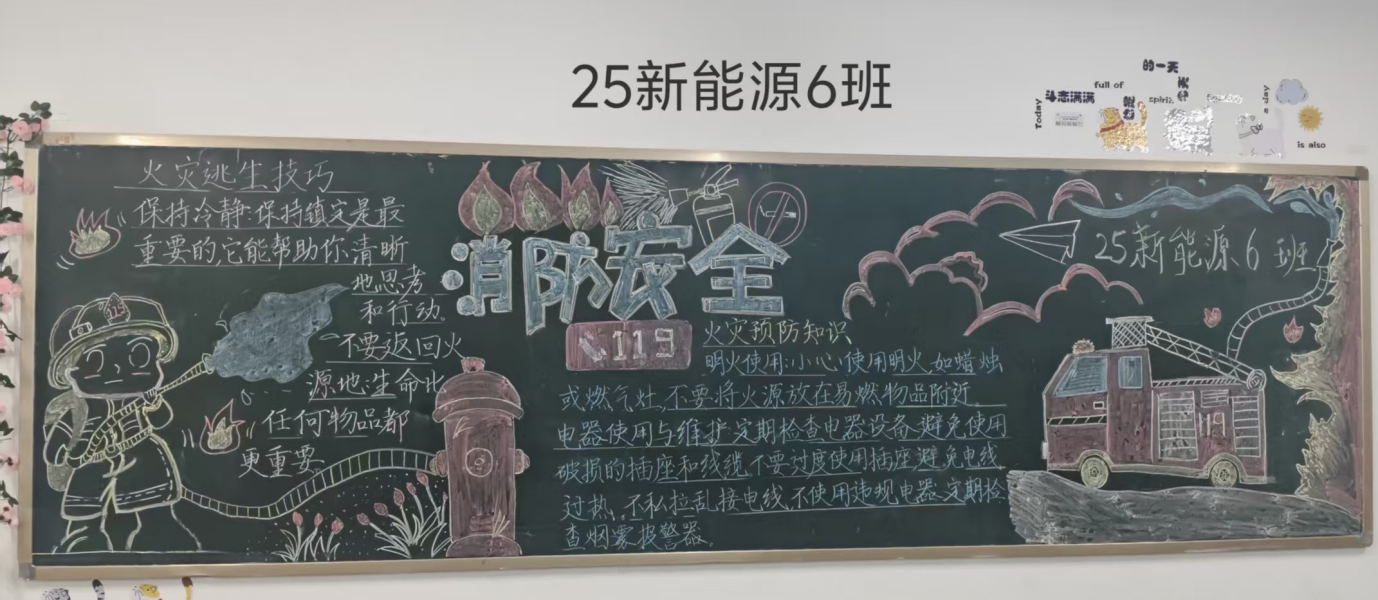 25新能源6班
的一天
斗志满满
full of
Today
spirit,
a day
is also
火灾逃生技巧
保持冷静:保持镇定是最
重要的,它能帮助你清晰
地思考
和行动.
不要返回火
源地:生命比
任何物品都
更重要
消防安全
119
火灾预防知识
明火使用:小心使用明火,如蜡烛
或燃气灶,不要将火源放在易燃物品附近.
电器使用与维护:定期检查电器设备,避免使用
破损的插座和线缆,不要过度使用插座,避免电线
过热,不私拉乱接电线,不使用违规电器,定期检
查烟雾报警器.
25新能源6班
119